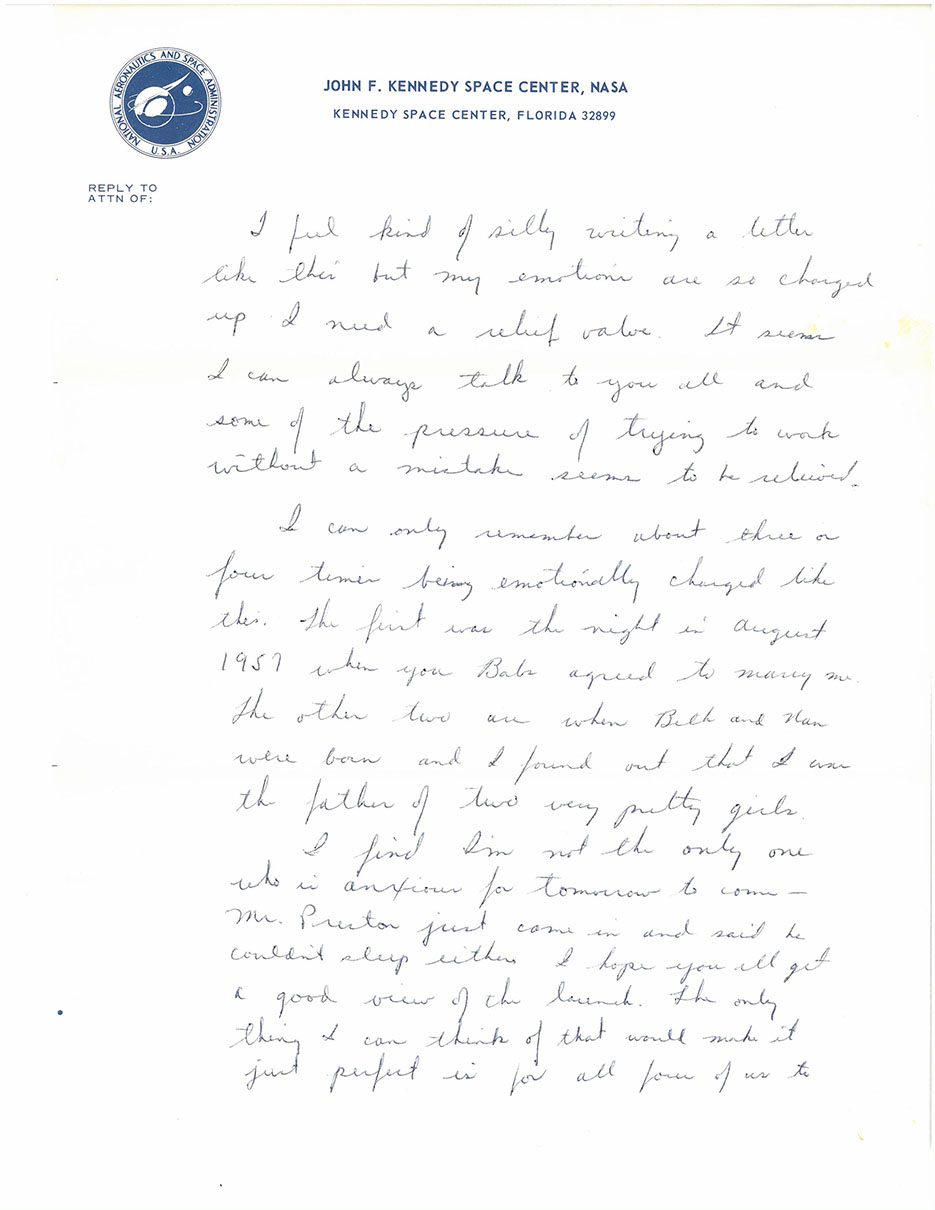 NATIONAL AERONAUTICS AND SPACE ADMINISTRATION
U.S.A.
JOHN F. KENNEDY SPACE CENTER, NASA
KENNEDY SPACE CENTER, FLORIDA 32899
REPLY TO
ATTN OF:
I feel kind of silly writing a letter
like this but my emotions are so charged
up I need a relief valve. It seems
I can always talk to you all and
some of the pressure of trying to work
without a mistake seems to be relieved.
I can only remember about three or
four times being emotionally charged like
this. The first was the night in August
1957 when you Babs agreed to marry me.
The other two are when Beth and Nan
were born and I found out that I was
the father of two very pretty girls.
I find I'm not the only one
who is anxious for tomorrow to come —
Mr. Preston just came in and said he
couldn't sleep either. I hope you all get
a good view of the launch. The only
thing I can think of that would make it
just perfect is for all four of us to